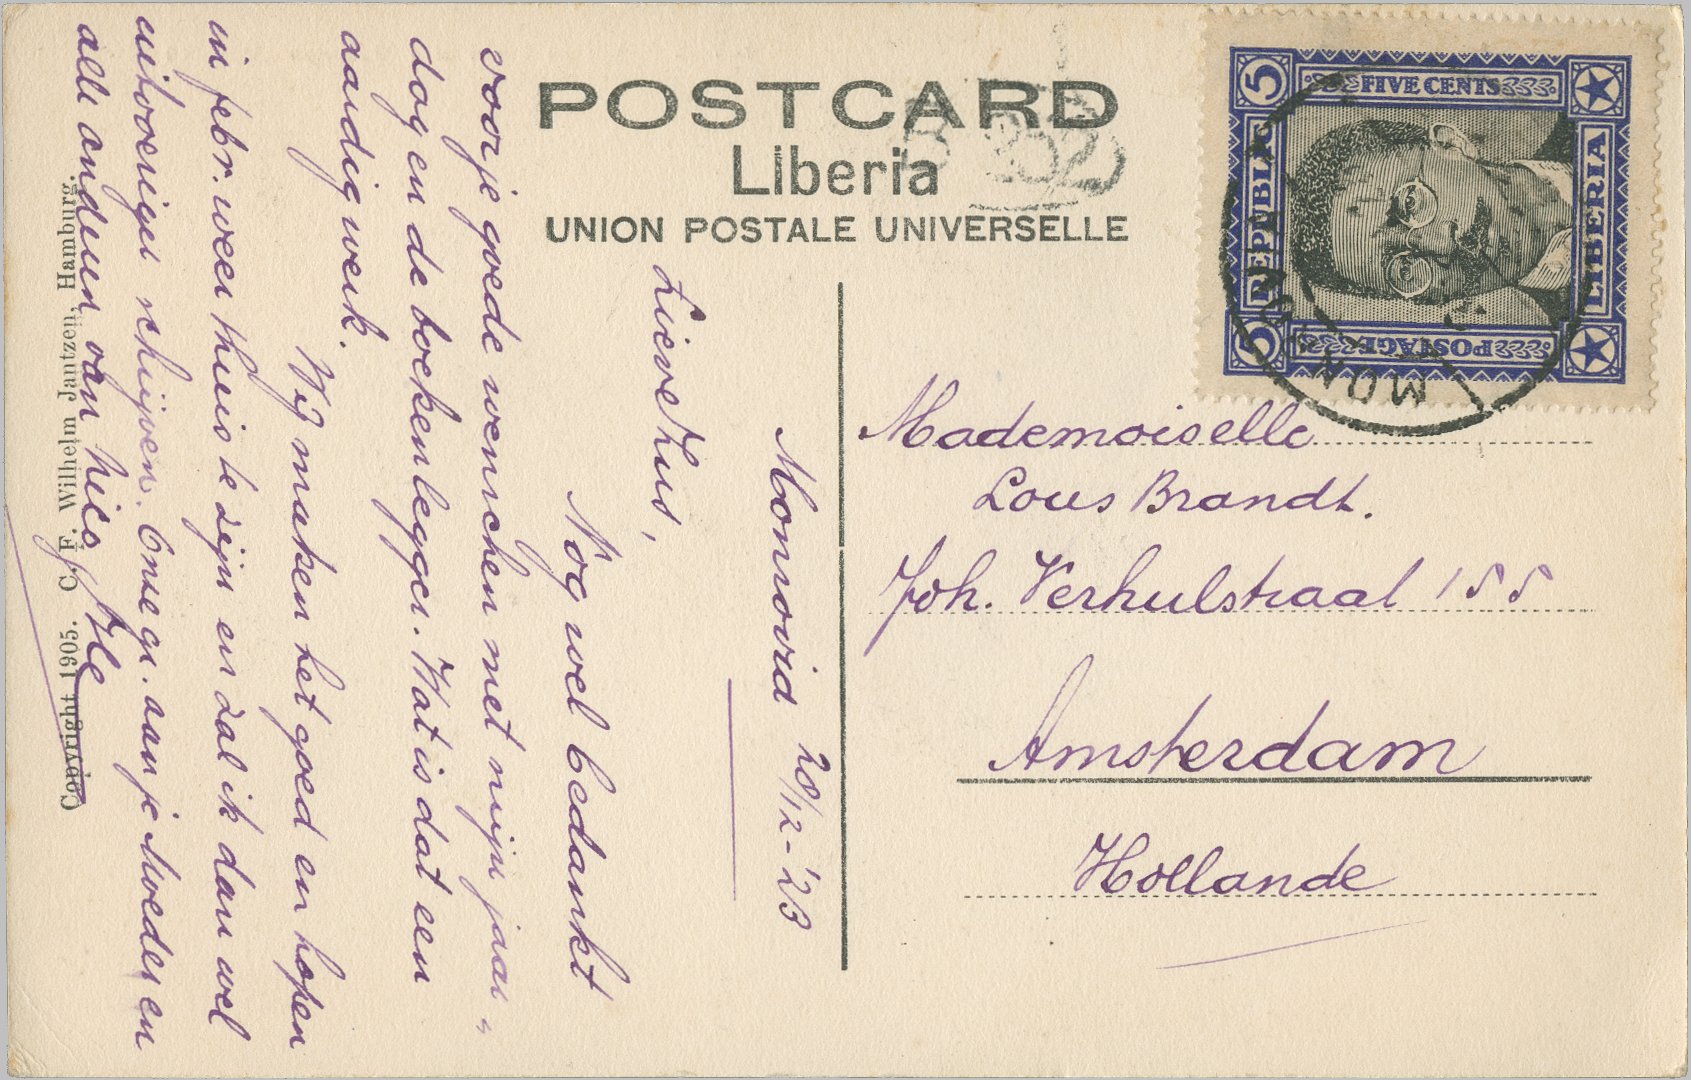 POSTCARD
Liberia
UNION POSTALE UNIVERSELLE
5 REPUBLIC 5
FIVE CENTS
POSTAGE
LIBERIA
Mademoiselle
Lous Brandt.
Joh. Verhulstraat 155
Amsterdam
Hollande
Monrovia 20/12-'23
Lieve Zus,
Nog wel bedankt
voor je goede wenschen met mijn jaar„
dag en de boekenlegger. Wat is dat een
aardig werk.
Wij maken het goed en hopen
in febr. weer thuis te zijn en zal ik dan wel
uitvoeriger schrijven. Onze gr. aan je Moeder en
alle anderen van
Copyright 1905. C. F. Wilhelm Jantzen, Hamburg.